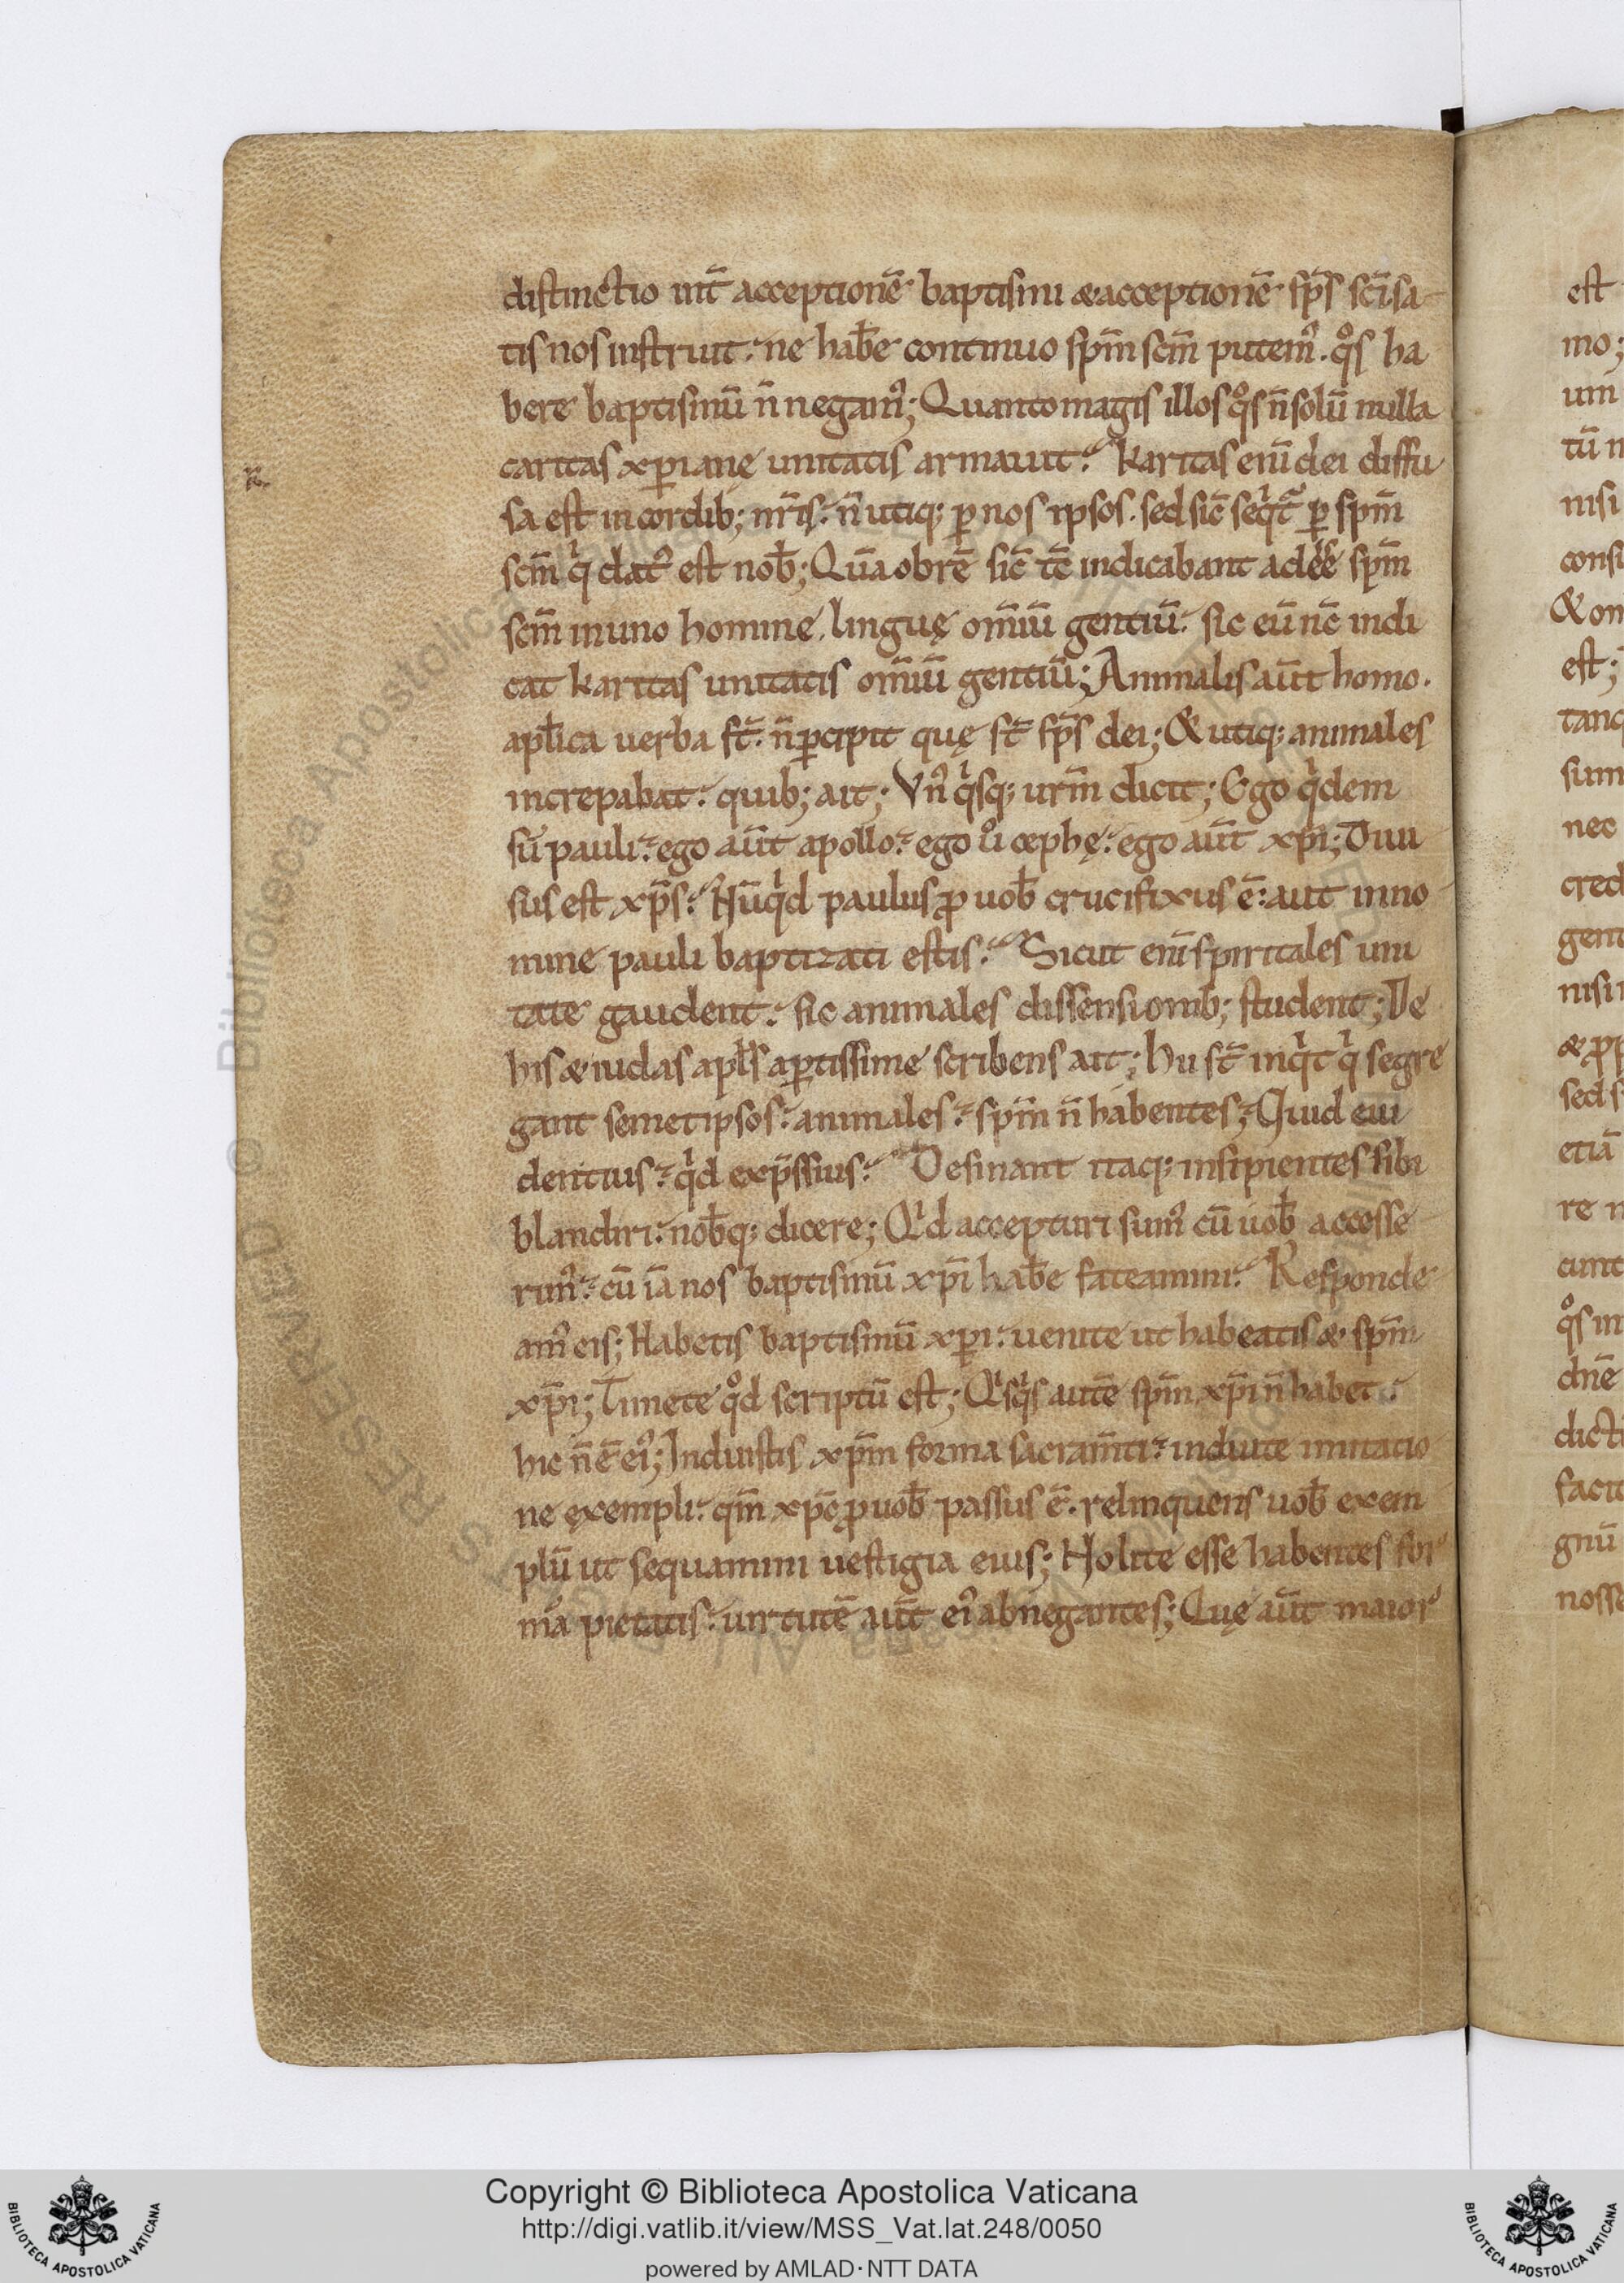 distinctio int̄ acceptionē baptismi & acceptionē sp̄s sc̄i sa
tis nos instruit. ne hab̄e continuo sp̄m sc̄m putem᷒. qͦs ha
bere baptismū n̄ negam᷒; Quanto magis illos qͦs n̄ solū nulla
caritas xp̄ianę unitatis armauit. Karitas enī dei diffu
sa est in cordib; nr̄is. n̄ utiq; ꝑ nos ipsos. sed sic̄ seqͥt̄ ꝑ sp̄m
sc̄m qͥ dat᷒ est nob̄; Quā ob rē sic̄ tc̄ indicabant adēē sp̄m
sc̄m in uno homine, linguę om̄iū gentiū. sic eū nc̄ indi
cat karitas unitatis om̄iū gentiū; Animalis aūt homo.
apl̄ica uerba st̄. n̄ ꝑcipit quę st̄ sp̄s dei; & utiq; animales
increpabat. quib; ait; Vn᷒qͥsq; ur̄m dicit; Ego qͥdem
sū pauli. ego aūt apollo. ego uͦ cephę. ego aūt xp̄i; Diui
sus est xp̄s. Nūqͥd paulus ꝓ uob̄ crucifixus ē. aut in no
mine pauli baptizati estis. Sicut enī spiritales uni
tate gaudent. sic animales dissensionib; student; De
his & iudas apl̄s aꝑtissime scribens ait; Hii st̄ inqͥt qͥ segre
gant semet ipsos. animales. sp̄m n̄ habentes; Quid eui
dentius. qͥd exp̄ssius. Desinant itaq; insipientes sibi
blandiri. nob̄q; dicere; Qͥd accepturi sum᷒ cū uob̄ accesse
rim᷒. cū iā nos baptismū xp̄i hab̄e fateamini. Responde
am᷒ eis; Habetis baptismū xp̄i. uenite ut habeatis & sp̄m
xp̄i; Timete qͦd scriptū est; Qͥsqͥs autē sp̄m xp̄i n̄ habet.
hic n̄ ē ei᷒; Induistis xp̄m forma sacram̄ti. induite imitatio
ne exempli. qm̄ xp̄c ꝓ uob̄ passus ē. relinquens uob̄ exem
plū ut sequamini uestigia eius; Nolite esse habentes for
mā pietatis. uirtutē aūt ei᷒ abnegantes; Quę aūt maior
est
mo;
um
tū n
nisi
consi
& om
est;
tanq
sum
nec
cred
gent
nisi
sed s
etiā
re n
cunt
qͦs in
dnē
dicti
facit
gnū
nosse
Copyright © Biblioteca Apostolica Vaticana
http://digi.vatlib.it/view/MSS_Vat.lat.248/0050
powered by AMLAD·NTT DATA
BIBLIOTECA APOSTOLICA VATICANA
BIBLIOTECA APOSTOLICA VATICANA